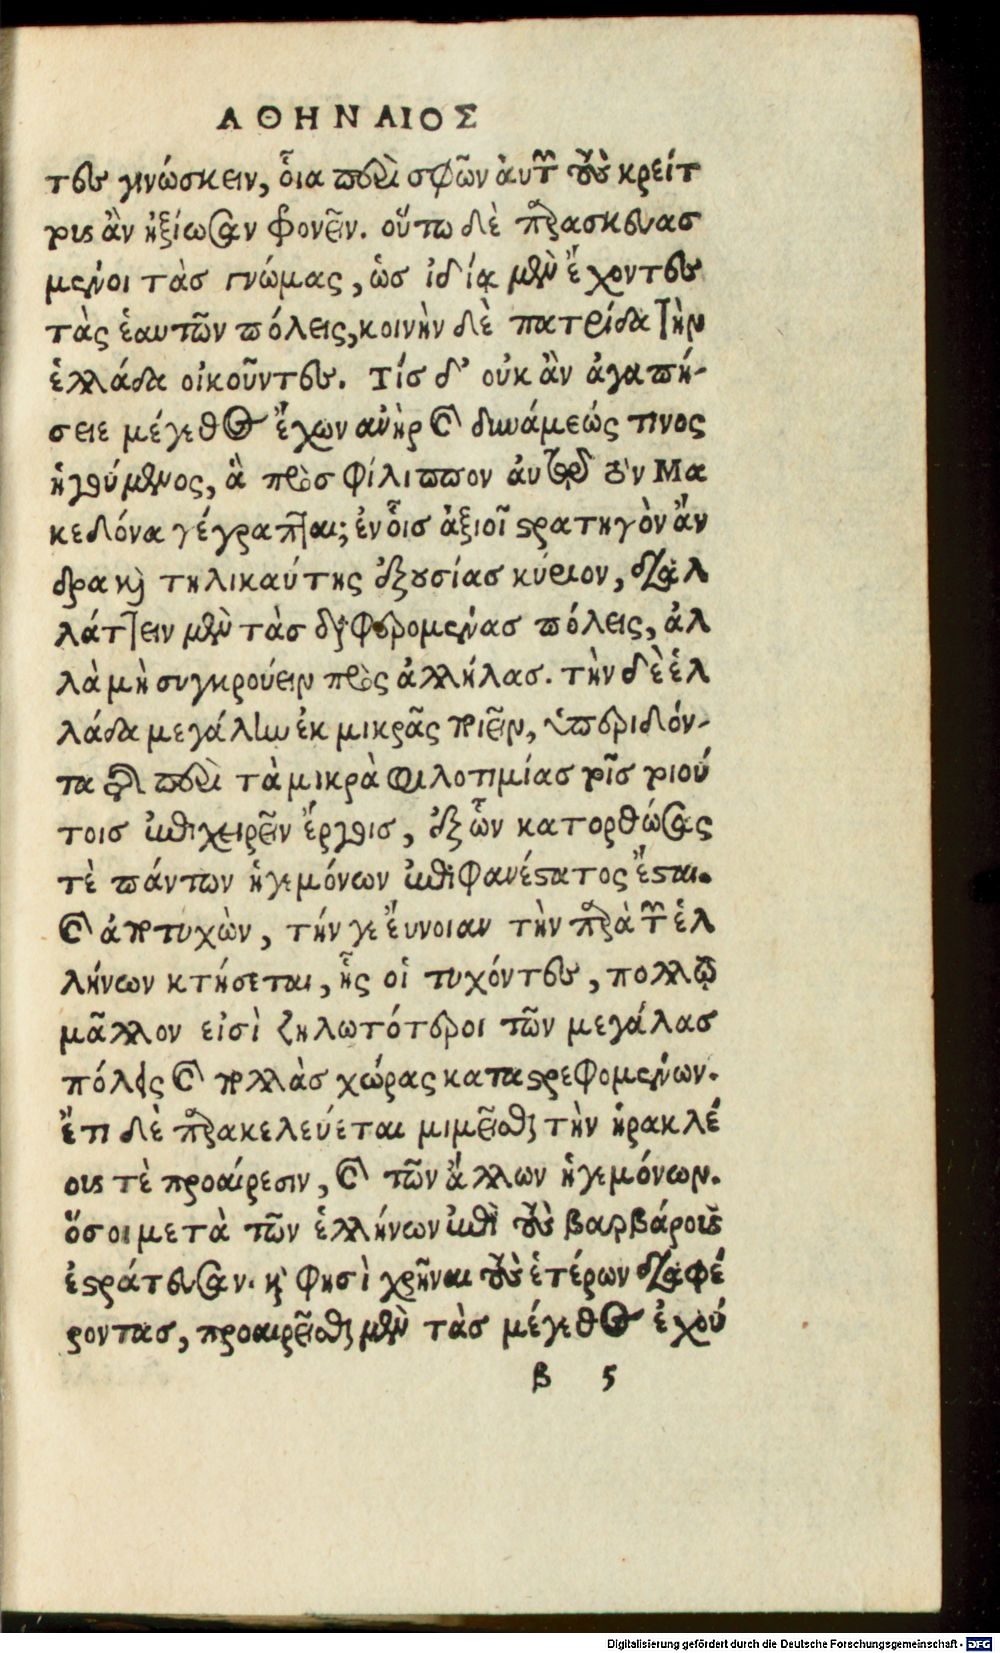 ΑΘΗΝΑΙΟΣ
τες γινώσκειν, οἷα περὶ σφῶν ἀυτῶν τοὺς κρείτ
τους ἂν ἠξίωσαν φρονεῖν. οὕτω δὲ παρασκευασ
μένοι τὰσ γνώμας, ὡσ ἰδίᾳ μὲν ἔχοντες
τὰς ἑαυτῶν πόλεις, κοινὴν δὲ πατρίδα τὴν
ἑλλάδα οἰκοῦντες. Τίσ δ' οὐκ ἂν ἀγαπή-
σειε μέγεθος ἔχων ἀνὴρ καὶ δυνάμεώς τινος
ἡγούμενος, ἃ πρὸσ φίλιππον ἀυτῷ τὸν Μα
κεδόνα γέγραπται; ἐν οἷσ ἀξιοῖ στρατηγὸν ἄν
δρα καὶ τηλικαύτης ἐξουσίασ κύριον, διαλ
λάττειν μὲν τὰσ διαφερομένασ πόλεις, ἀλ
λὰ μὴ συγκρούειν πρὸς ἀλλήλασ. τὴν δὲ ἑλ
λάδα μεγάλην ἐκ μικρᾶς ποιεῖν, ὑπεριδόν-
τα δὲ περὶ τὰ μικρὰ φιλοτιμίασ τοῖσ τοιού
τοισ ἐπιχειρεῖν ἔργοις, ἐξ ὧν κατορθώσας
τὲ πάντων ἡγεμόνων ἐπιφανέστατος ἔσται.
καὶ ἀποτυχὼν, τήν γε ἔυνοιαν τὴν παρὰ τῶν ἑλ
λήνων κτήσεται, ἧς οἱ τυχόντες, πολλῷ
μᾶλλον εἰσὶ ζηλωτότεροι τῶν μεγάλασ
πόλεις καὶ πολλὰσ χώρας καταστρεφομένων.
ἔτι δὲ παρακελεύεται μιμεῖσθαι τὴν ἡρακλέ
ους τὲ προαίρεσιν, καὶ τῶν ἄλλων ἡγεμόνων.
ὅσοι μετὰ τῶν ἑλλήνων ἐπὶ τοὺς βαρβάρους
ἐστράτευσαν. καὶ φησὶ χρῆναι τοὺς ἑτέρων διαφέ
ροντασ, προαιρεῖσθαι μὲν τὰσ μέγεθος ἐχού
β 5
Digitalisierung gefördert durch die Deutsche Forschungsgemeinschaft - DFG